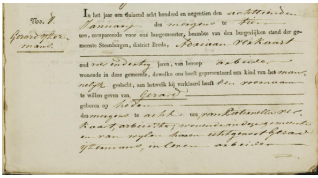 Nro. 8.
Gerard
In het jaar een duizend acht honderd en negentien den achttienden
January des morgens te tien
ure, compareerde voor ons burgemeester, beambte van den burgerlijken stand der ge-
meente Steenbergen, district Breda, Adriaan
oud vijfendertig jaren, van beroep arbeider
wonende in deze gemeente, dewelke ons heeft gepresenteerd een kind van het man-
nelijk geslacht, aan hetwelk hij verklaard heeft den voornaam
te willen geven van Gerard
geboren op heden
des morgens te acht ure, van
arbeidster wonende in deze gemeente
en van wylen haren echtgenoot Gerard
in leven arbeider